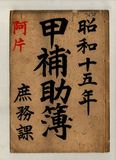 昭和十五年
甲補助簿
阿片
庶務課